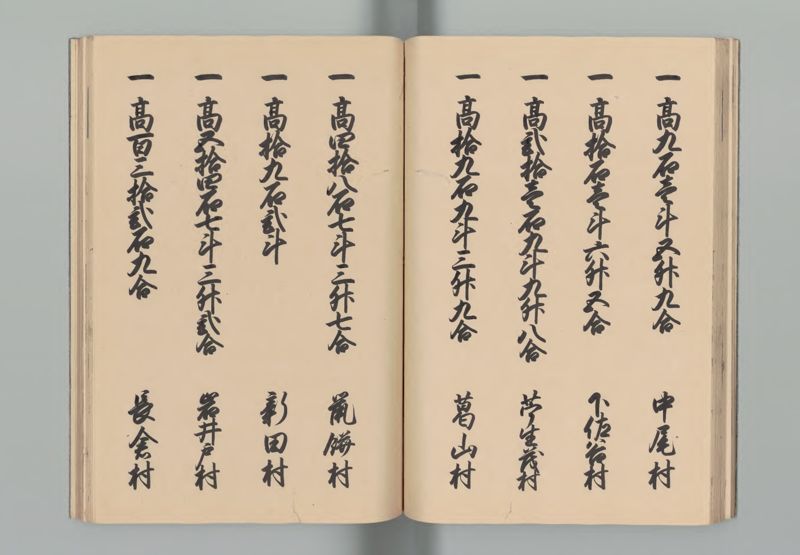 一 高九石壱斗五升九合 中尾村
一 高拾石壱斗六升五合 下佐谷村
一 高弐拾壱石九斗九升八合 芹生茂村
一 高拾九石九斗三升九合 葛山村
一 高四拾八石七斗三升七合 鼠餅村
一 高拾九石弐斗 新田村
一 高五拾四石七斗三升弐合 岩井戸村
一 高百三拾弐石九合 長倉村